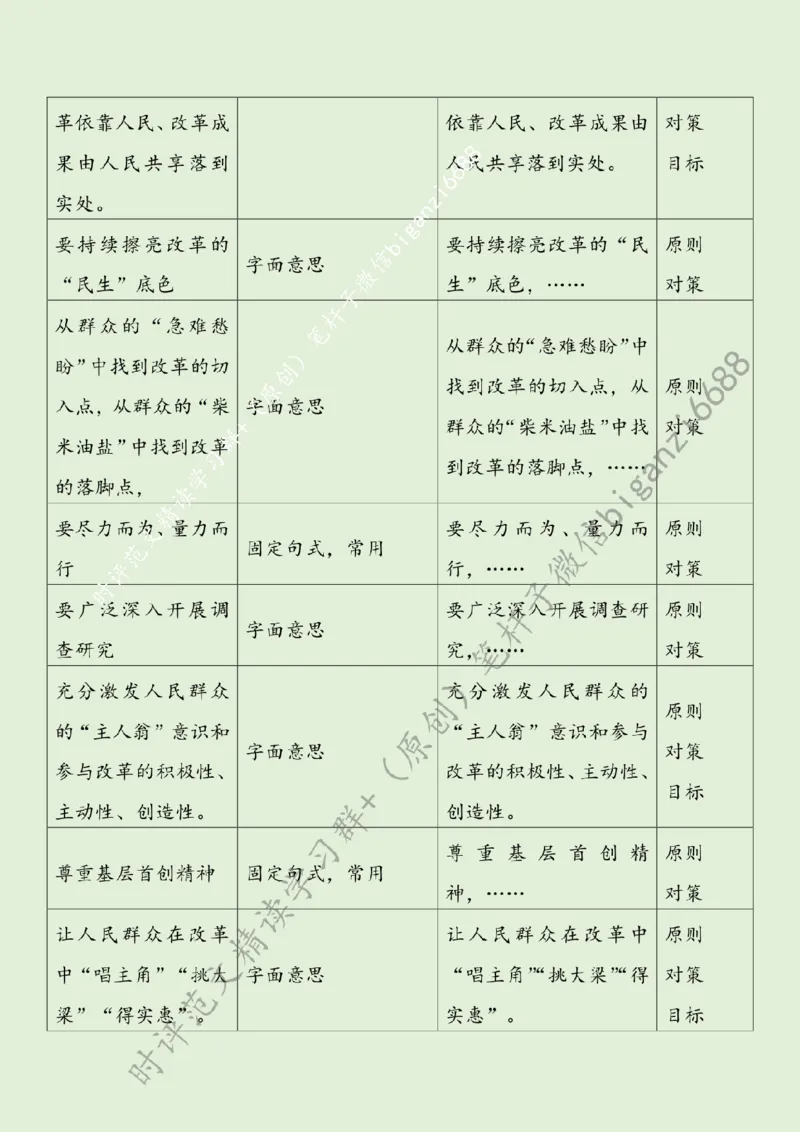 革依靠人民、改革成
果由人民共享落到
实处。
依靠人民、改革成果由
人民共享落到实处。
对策
目标
要持续擦亮改革的
“民生”底色
字面意思
要持续擦亮改革的“民
生”底色，……
原则
对策
从群众的“急难愁
盼”中找到改革的切
入点，从群众的“柴
米油盐”中找到改革
的落脚点，
字面意思
从群众的“急难愁盼”中
找到改革的切入点，从
群众的“柴米油盐”中找
到改革的落脚点，……
原则
对策
要尽力而为、量力而
行
固定句式，常用
要尽力而为、量力而
行，……
原则
对策
要广泛深入开展调
查研究
字面意思
要广泛深入开展调查研
究，……
原则
对策
充分激发人民群众
的“主人翁”意识和
参与改革的积极性、
主动性、创造性。
字面意思
充分激发人民群众的
“主人翁”意识和参与
改革的积极性、主动性、
创造性。
原则
对策
目标
尊重基层首创精神
固定句式，常用
尊重基层首创精
神，……
原则
对策
让人民群众在改革
中“唱主角”“挑大
梁”“得实惠”。
字面意思
让人民群众在改革中
“唱主角”“挑大梁”“得
实惠”。
原则
对策
目标
时评范文精读学习群+（原创）笔杆子微信biganzi6688
时评范文精读学习群+（原创）笔杆子微信biganzi6688